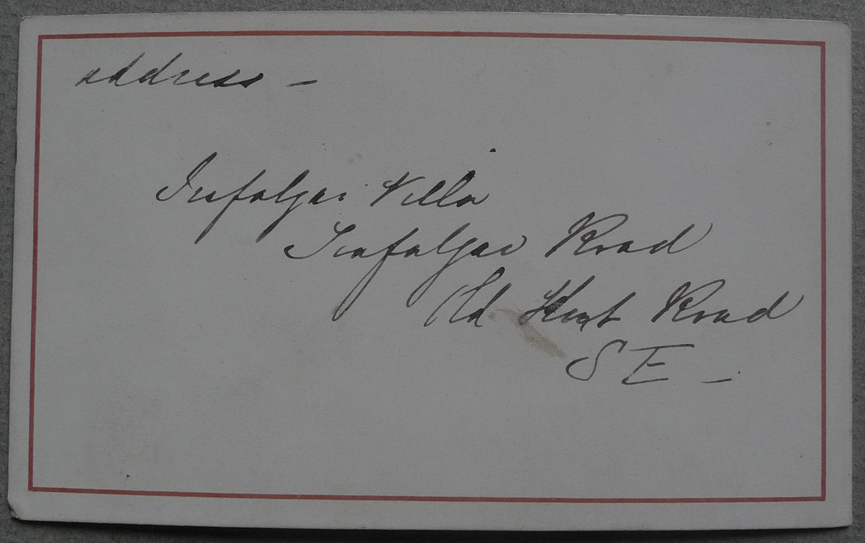 address –
Trafalgar Villa
Trafalgar Road
Old Kent Road
S E –